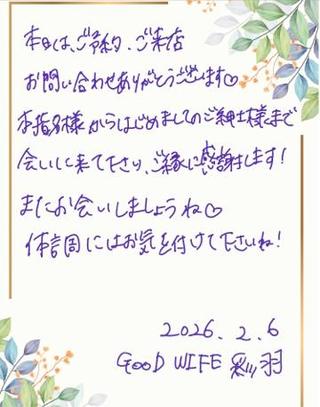 本日は、ご予約、ご来店
お問い合わせありがとうございます♡
本指名様からはじめましてのご紳士様まで
会いに来て下さり、ご縁に感謝します!
またお会いしましょうね♡
体調にはお気を付けて下さいね!
2026.2.6
GOOD WIFE 彩羽